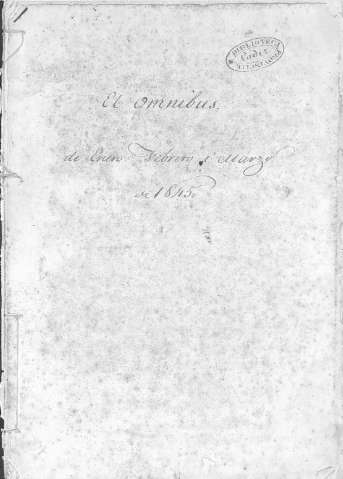 BIBLIOTECA
Cadiz
El Omnibus.
de Enero Febrero y Marzo
de 1845